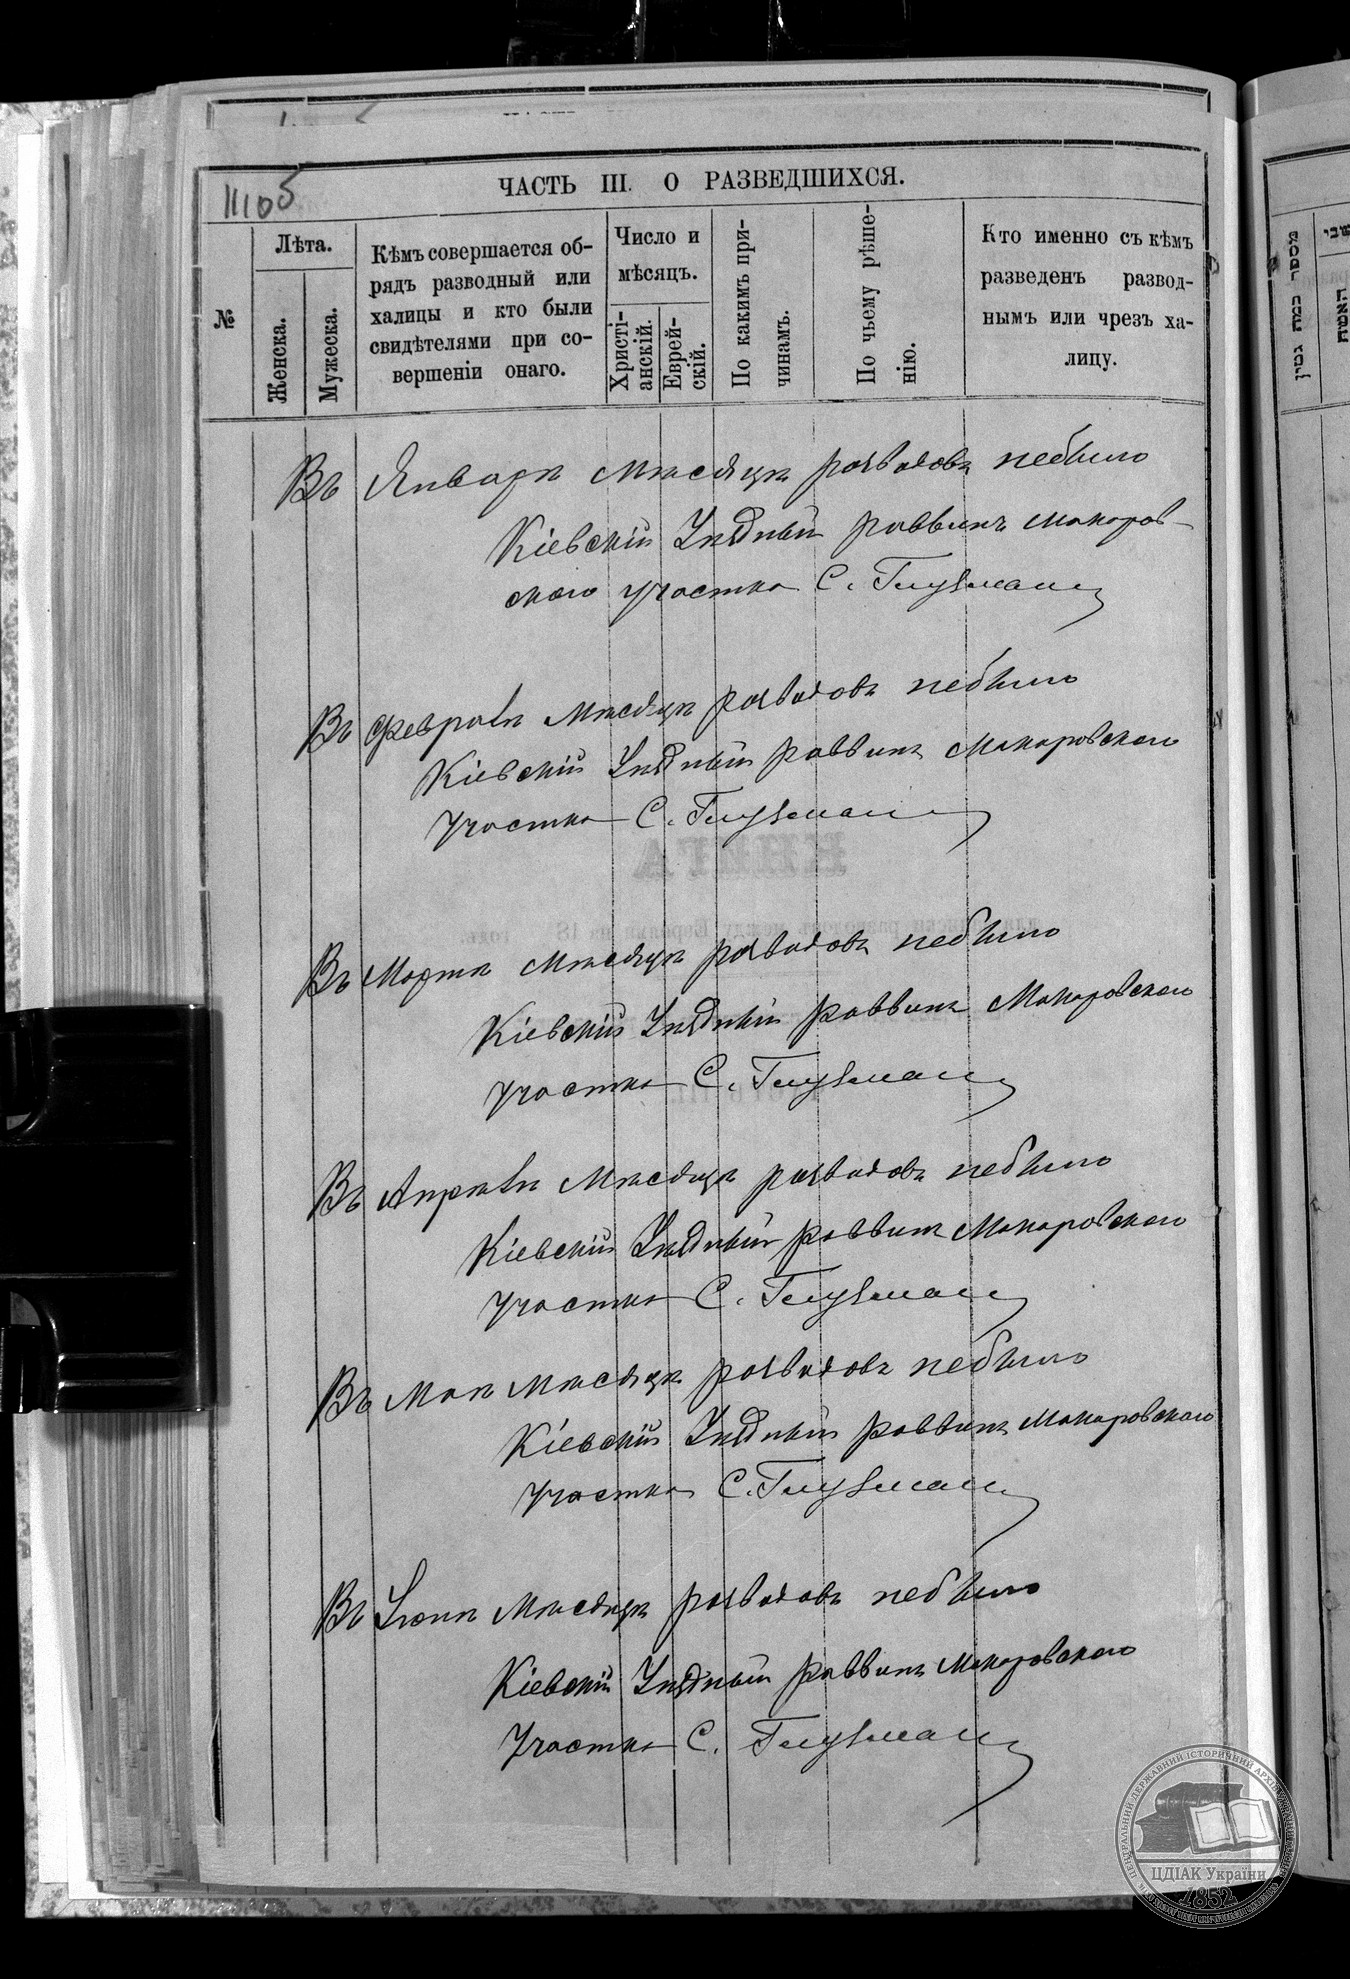 ЧАСТЬ III. О РАЗВЕДШИХСЯ.
№
Лѣта.
Женска.
Мужеска.
Кѣмъ совершается об-
рядъ разводный или
халицы и кто были
свидѣтелями при со-
вершеніи онаго.
Число и
мѣсяцъ.
Христі-
анскій.
Еврей-
скій.
По какимъ при-
чинамъ.
По чьему рѣше-
нію.
Кто именно съ кѣмъ
разведенъ развод-
нымъ или чрезъ ха-
лицу.
Въ Январѣ мѣсяцѣ разводовъ небыло
Кіевскій Уѣздный раввинъ Макаров-
скаго участка С. Глузманъ
Въ Февралѣ мѣсяцѣ разводовъ небыло
Кіевскій Уѣздный раввинъ Макаровскаго
Участка С. Глузманъ
Въ Мартѣ мѣсяцѣ разводовъ небыло
Кіевскій Уѣздный раввинъ Макаровскаго
Участка С. Глузманъ
Въ Апрѣлѣ мѣсяцѣ разводовъ небыло
Кіевскій Уѣздный раввинъ Макаровскаго
Участка С. Глузманъ
Въ Маѣ мѣсяцѣ разводовъ небыло
Кіевскій Уѣздный раввинъ Макаровскаго
Участка С. Глузманъ
Въ Іюнѣ мѣсяцѣ разводовъ небыло
Кіевскій Уѣздный раввинъ Макаровскаго
Участка С. Глузманъ
מספר כמה גטין
האשה
ЦДІАК України
1852